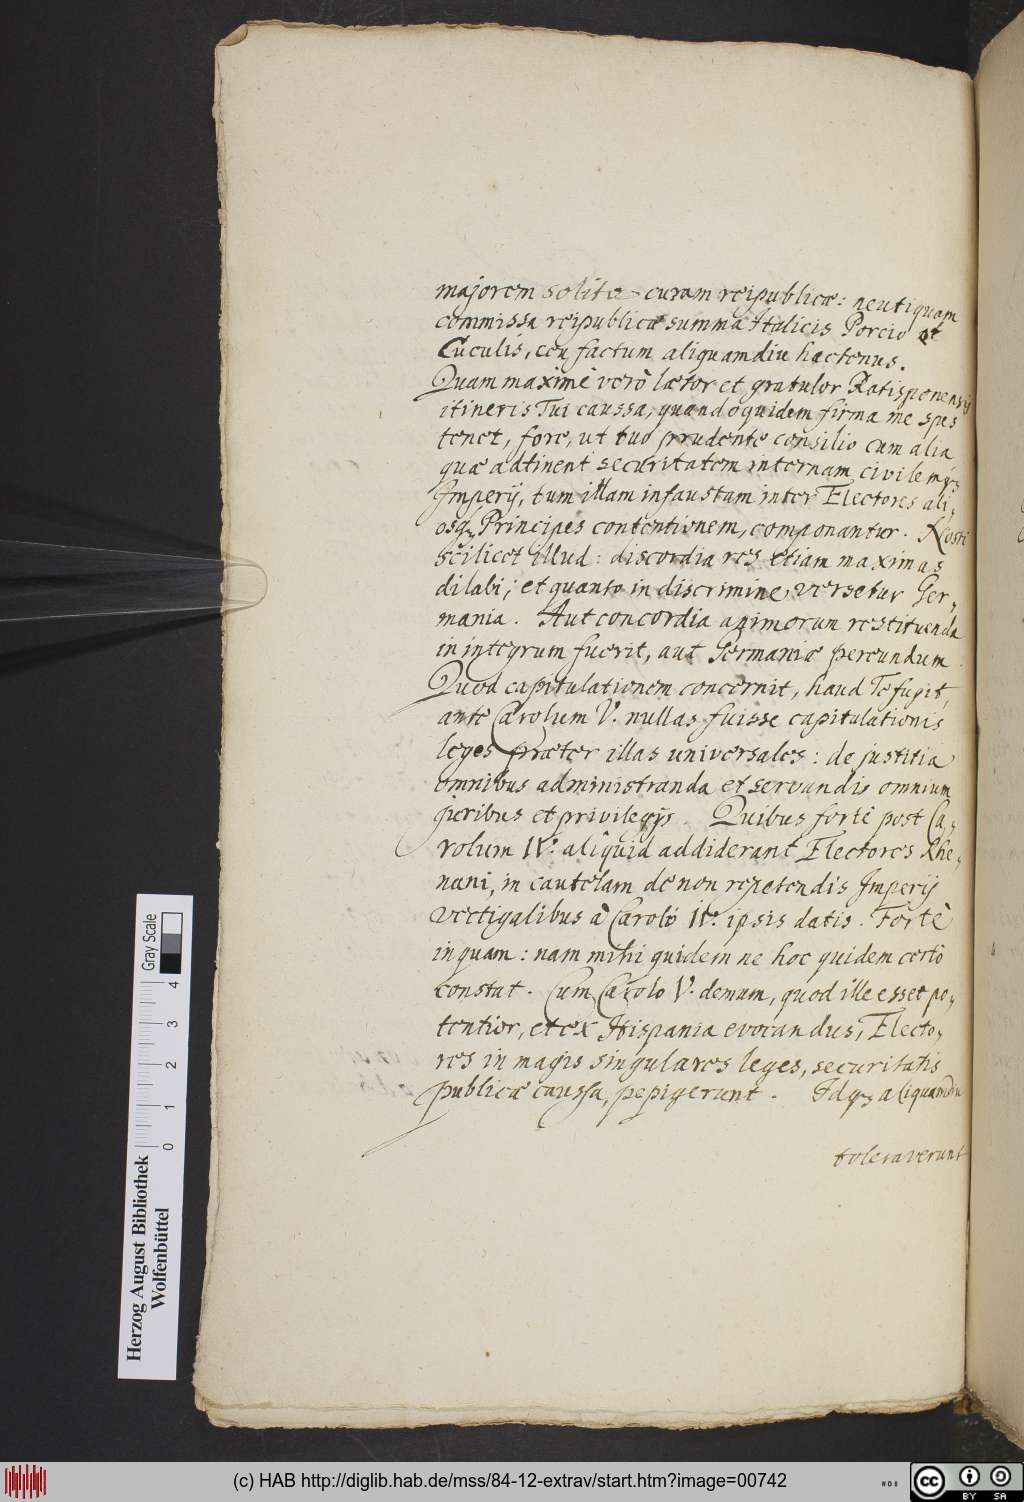 majorem solito curam reipublicæ: neutiquam
commissa reipublicæ summa Italicis Porcio et
Cuculis, ceu factum aliquamdiu hactenus.
Quam maximè verò lætor et gratulor Ratisponensis
itineris Tui caussa, quandoquidem firma me spes
tenet, fore, ut tuo prudente consilio cum alia
quæ adtinent securitatem internam civilemq₃
Imperij, tum illam infaustam inter Electores ali,
osq₃ Principes contentionem, componantur. Nosti
scilicet illud: discordia res etiam maximas
dilabi; et quanto in discrimine versetur Ger,
mania. Aut concordia animorum restituenda
in integrum fuerit, aut Germaniæ pereundum.
Quod capitulationem concernit, haud Te fugit,
ante Carolum V. nullas fuisse capitulationis
leges præter illas universales: de justitia
omnibus administranda et servandis omnium
juribus et privilegijs. Quibus fortè post Ca,
rolum IV. aliquid addiderant Electores Rhe,
nani, in cautelam de non repetendis Imperij
vectigalibus à Carolo IV. ipsis datis. Fortè
inquam: nam mihi quidem ne hoc quidem certò
constat. Cum Carolo V. demum, quod ille esset po,
tentior, et ex Hispania evocandus, Electo,
res in magis singulares leges, securitatis
publicæ caussa, pepigerunt. Idq₃ aliquamdiu
toleraverunt
Herzog August Bibliothek
Wolfenbüttel
0 1 2 3 4
Gray Scale
(c) HAB http://diglib.hab.de/mss/84-12-extrav/start.htm?image=00742
WDB
cc BY SA